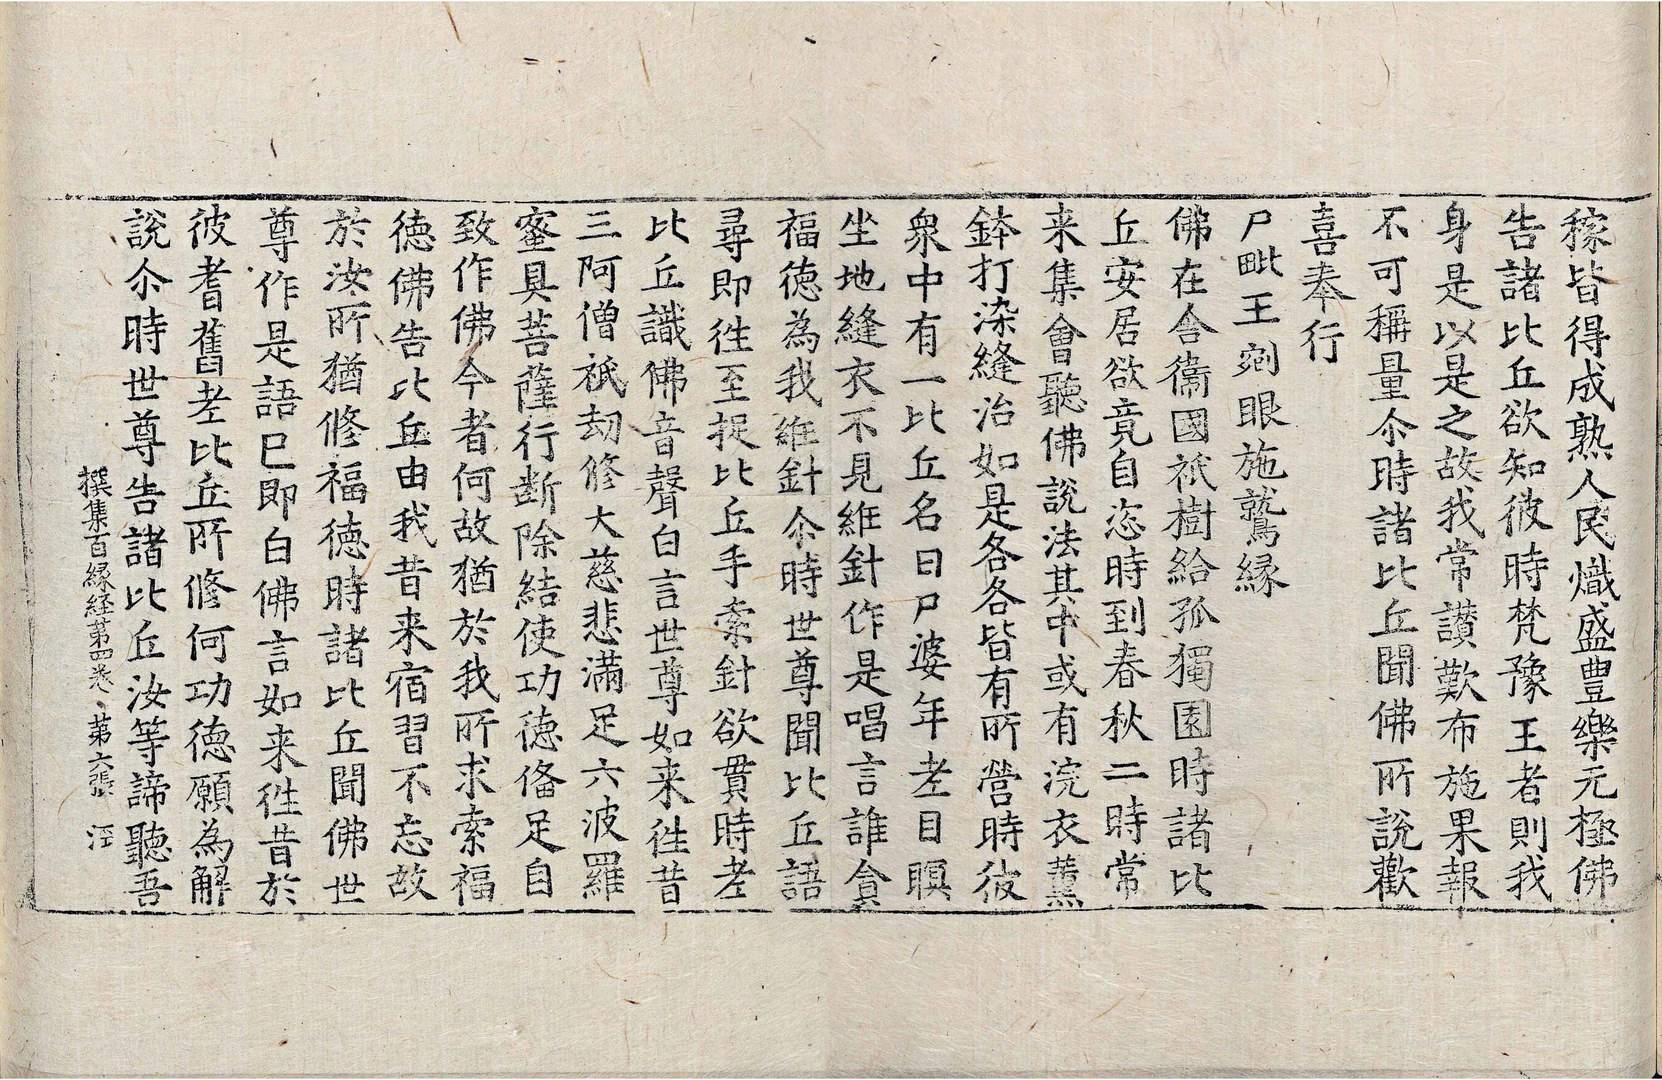 稼皆得成熟人民熾盛豊樂元極佛
告諸比丘欲知彼時梵豫王者則我
身是以是之故我常讃歎布施果報
不可稱量尒時諸比丘聞佛所說歡
喜奉行
尸毗王剜眼施鷲緣
佛在舍衞國祇樹給孤獨園時諸比
丘安居欲竟自恣時到春秋二時常
来集會聽佛說法其中或有浣衣薰
鉢打染縫治如是各各皆有所營時彼
衆中有一比丘名曰尸婆年老目瞑
坐地縫衣不見維針作是唱言誰貪
福德為我維針尒時世尊聞比丘語
尋即徃至捉比丘手索針欲貫時老
比丘識佛音聲白言世尊如来徃昔
三阿僧祇劫修大慈悲滿足六波羅
蜜具菩薩行断除結使功德俻足自
致作佛今者何故猶於我所求索福
德佛告比丘由我昔来宿習不忘故
於汝所猶修福德時諸比丘聞佛世
尊作是語已即白佛言如来徃昔於
彼耆舊老比丘所修何功德願為解
說尒時世尊告諸比丘汝等諦聽吾
撰集百緣経第四卷 第六張 泾